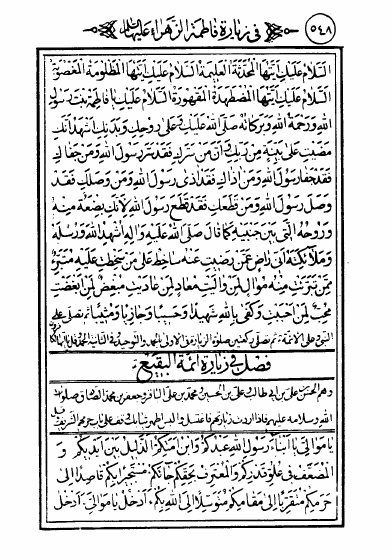 ٥٤٨
في زيارة فاطمة الزهراء عليها السلام
السلام عليك ايتها المحدثة العليمة السلام عليك ايتها المظلومة المغصوبة
السلام عليك ايتها المضطهدة المقهورة السلام عليك يا فاطمة بنت رسول
الله ورحمة الله وبركاته صلى الله عليك وعلى روحك وبدنك اشهد انك
مضيت على بينة من ربك وان من سرك فقد سر رسول الله ومن جفاك
فقد جفا رسول الله ومن اذاك فقد اذى رسول الله ومن وصلك فقد
وصل رسول الله ومن قطعك فقد قطع رسول الله لانك بضعة منه
وروحه التي بين جنبيه كما قال صلى الله عليه واله اشهد الله ورسله
وملائكته اني راض عمن رضيت عنه ساخط على من سخطت عليه متبرء
ممن تبرئت منه موال لمن واليت معاد لمن عاديت مبغض لمن ابغضت
محب لمن احببت وكفى بالله شهيدا وحسيبا وجازيا ومثيبا ثم تصلي على
النبي وعلى الائمة ثم تصلي ركعتين صلوة الزيارة في الاولى بالحمد والتوحيد وفي الثانية الحمد وقل يا ايها
فصل في زيارة ائمة البقيع
وهم الحسن بن علي بن ابي طالب وعلي بن الحسين ومحمد بن علي الباقر وجعفر بن محمد الصادق صلوات
الله وسلامه عليهم فاذا اردت زيارتهم فاغتسل والبس اطهر ثيابك وقف على باب حرمهم الشريف وقل
يا موالي يا ابناء رسول الله عبدكم وابن امتكم الذليل بين ايديكم و
المضعف في علو قدركم والمعترف بحقكم جائكم مستجيرا بكم قاصدا الى
حرمكم متقربا الى مقامكم متوسلا الى الله بكم ءادخل يا موالي ءادخل